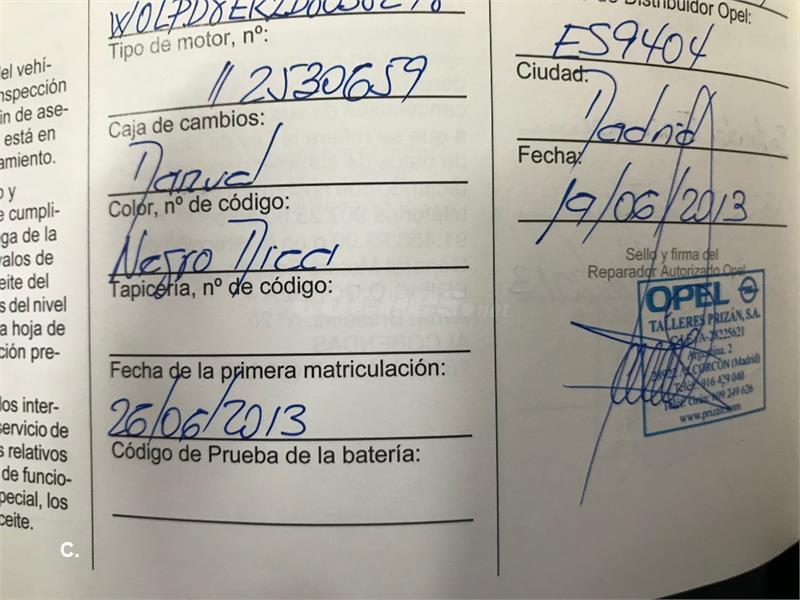 el vehí-
nspección
in de ase-
está en
amiento.
o y
e cumpli-
ga de la
valos de
eite del
s del nivel
a hoja de
ción pre-
los inter-
servicio de
s relativos
de funcio-
pecial, los
ceite.
C.
Tipo de motor, nº:
112530659
Caja de cambios:
Manual
Color, nº de código:
Negro Mica
Tapicería, nº de código:
Fecha de la primera matriculación:
26/06/2013
Código de Prueba de la batería:
Distribuidor Opel:
ES9404
Ciudad:
Madrid
Fecha:
19/06/2013
Sello y firma del
Reparador Autorizado Opel
OPEL
TALLERES PRIZÁN, S.A.
A-28225621
Argentina, 2
ALCORCÓN (Madrid)
916 429 040
609 249 626
www.prizan.com